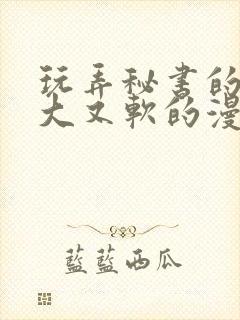 玩弄秘书的
大又軟的漫
藍藍西瓜